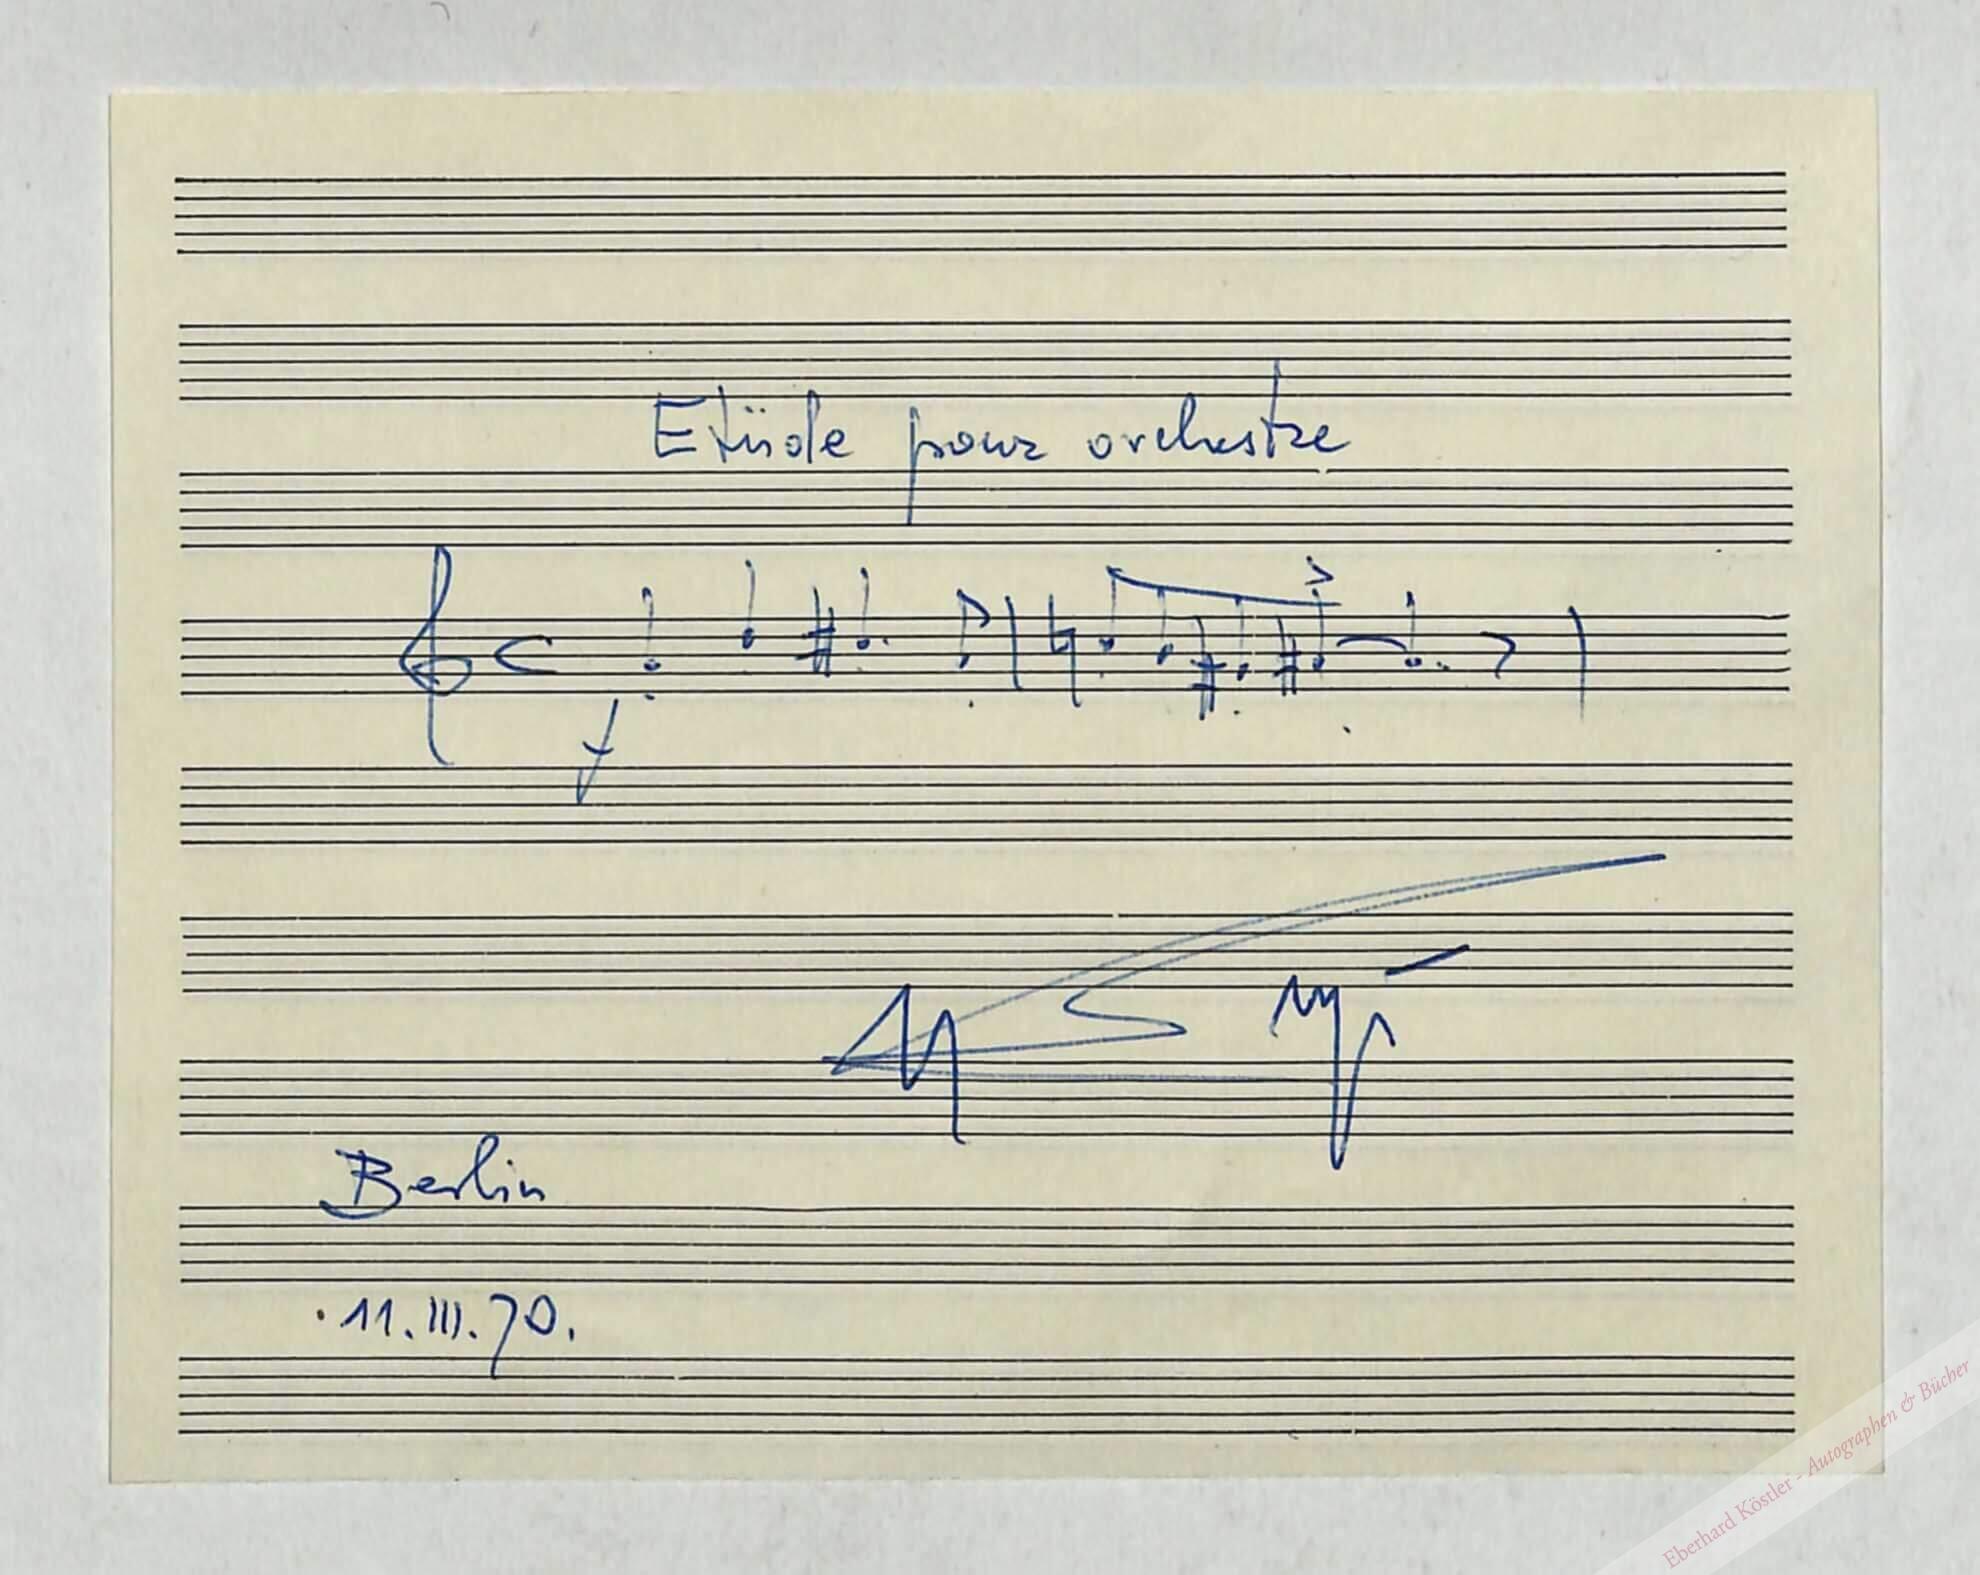 Etüde pour orchestre
Berlin
11.III.70.
Eberhard Köstler - Autographen & Bücher